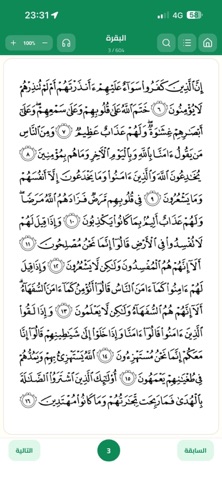 23:31
4G 58
البقرة
3 / 604
100%
إِنَّ ٱلَّذِينَ كَفَرُوا۟ سَوَآءٌ عَلَيْهِمْ ءَأَنذَرْتَهُمْ أَمْ لَمْ تُنذِرْهُمْ
لَا يُؤْمِنُونَ ٦ خَتَمَ ٱللَّهُ عَلَىٰ قُلُوبِهِمْ وَعَلَىٰ سَمْعِهِمْ ۖ وَعَلَىٰٓ
أَبْصَٰرِهِمْ غِشَٰوَةٌ ۖ وَلَهُمْ عَذَابٌ عَظِيمٌ ٧ وَمِنَ ٱلنَّاسِ
مَن يَقُولُ ءَامَنَّا بِٱللَّهِ وَبِٱلْيَوْمِ ٱلْءَاخِرِ وَمَا هُم بِمُؤْمِنِينَ ٨
يُخَٰدِعُونَ ٱللَّهَ وَٱلَّذِينَ ءَامَنُوا۟ وَمَا يَخْدَعُونَ إِلَّآ أَنفُسَهُمْ
وَمَا يَشْعُرُونَ ٩ فِى قُلُوبِهِم مَّرَضٌ فَزَادَهُمُ ٱللَّهُ مَرَضًا ۖ
وَلَهُمْ عَذَابٌ أَلِيمٌۢ بِمَا كَانُوا۟ يَكْذِبُونَ ١٠ وَإِذَا قِيلَ لَهُمْ
لَا تُفْسِدُوا۟ فِى ٱلْأَرْضِ قَالُوٓا۟ إِنَّمَا نَحْنُ مُصْلِحُونَ ١١
أَلَآ إِنَّهُمْ هُمُ ٱلْمُفْسِدُونَ وَلَٰكِن لَّا يَشْعُرُونَ ١٢ وَإِذَا قِيلَ
لَهُمْ ءَامِنُوا۟ كَمَآ ءَامَنَ ٱلنَّاسُ قَالُوٓا۟ أَنُؤْمِنُ كَمَآ ءَامَنَ ٱلسُّفَهَآءُ ۗ
أَلَآ إِنَّهُمْ هُمُ ٱلسُّفَهَآءُ وَلَٰكِن لَّا يَعْلَمُونَ ١٣ وَإِذَا لَقُوا۟
ٱلَّذِينَ ءَامَنُوا۟ قَالُوٓا۟ ءَامَنَّا وَإِذَا خَلَوْا۟ إِلَىٰ شَيَٰطِينِهِمْ قَالُوٓا۟ إِنَّا
مَعَكُمْ إِنَّمَا نَحْنُ مُسْتَهْزِءُونَ ١٤ ٱللَّهُ يَسْتَهْزِئُ بِهِمْ وَيَمُدُّهُمْ
فِى طُغْيَٰنِهِمْ يَعْمَهُونَ ١٥ أُو۟لَٰٓئِكَ ٱلَّذِينَ ٱشْتَرَوُا۟ ٱلضَّلَٰلَةَ
بِٱلْهُدَىٰ فَمَا رَبِحَت تِّجَٰرَتُهُمْ وَمَا كَانُوا۟ مُهْتَدِينَ ١٦
السابقة
3
التالية